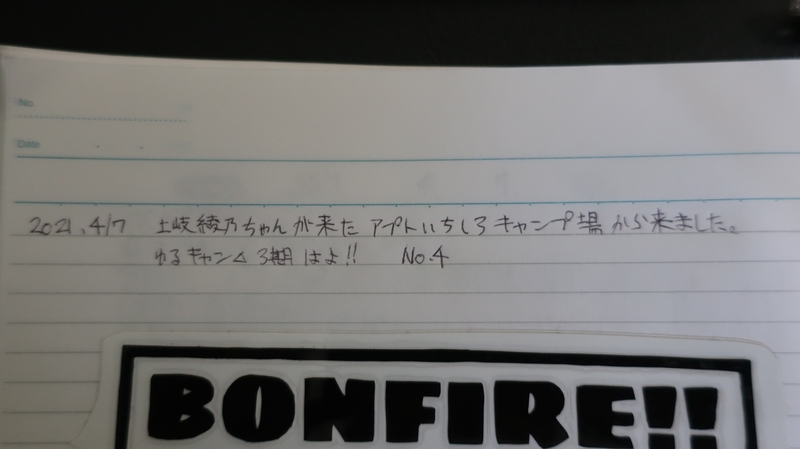 No.
Date
2021.4/7 土岐綾乃ちゃんが来た アプトいちしろキャンプ場から来ました。
ゆるキャン△ 3期はよ!! No.4
BONFIRE!!